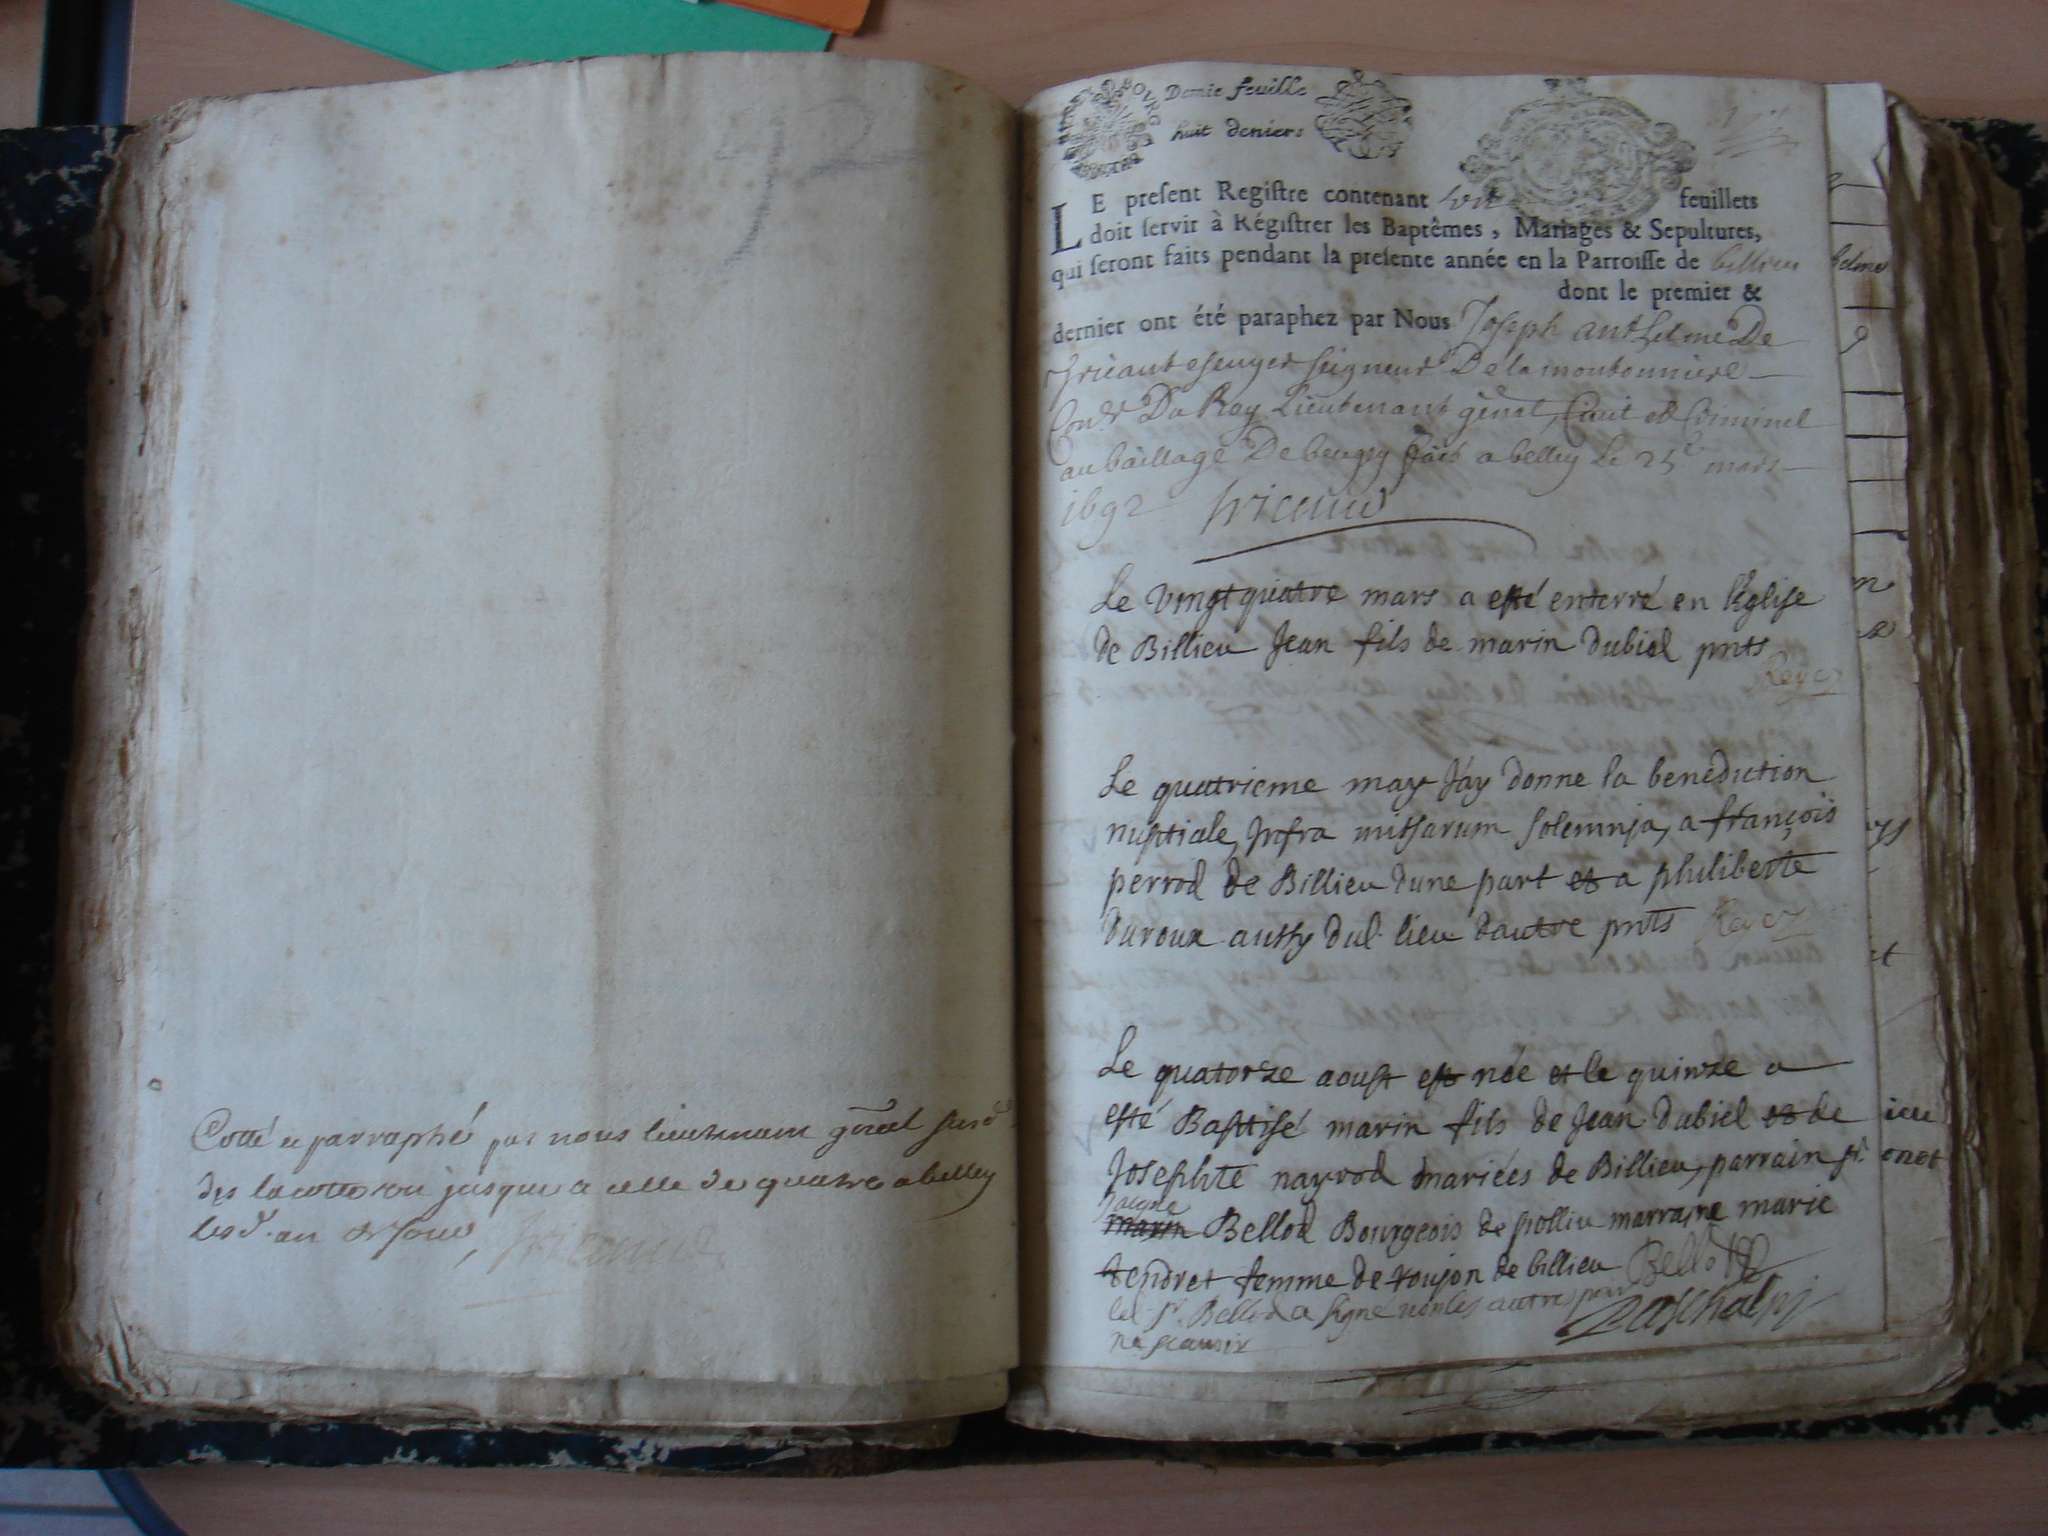 Cotté et parraphé par nous lieutenant gñal susd.
des la cotte jusques a celle de quatre a belley
lesd. an et jour,
BOURG
Demie feuille
huit deniers
LE present Registre contenant feuillets
doit servir à Régistrer les Baptêmes, Mariages & Sepultures,
qui seront faits pendant la presente année en la Parroisse de billieu
dont le premier &
dernier ont été paraphez par Nous Joseph anthelme De
fricaut escuyer seigneur De la moutonniere
Con.er Du Roy Lieutenant gēnal, Civil et Criminel
au bailliage De beugey fait a belley le 25e mars
1692 fricaud
Le vingt quatre mars a esté enterré en l'Eglise
de Billieu Jean fils de marin dubiel pnts
Reyc
Le quatrieme may J'ay donne la benediction
nuptiale, Infra missarum solemnja, a françois
perrod de Billieu d'une part et a philiberte
duroux aussy dud. lieu d'autre pnts Reyc
Le quatorze aoust est née et le quinze a
esté Baptisé marin fils de Jean dubiel et de
Josephte nayrod mariées de Billieu, parrain sr.
marin Bellod Bourgeois de marrajne marie
tendret femme de roujon de billieu Bellod
led. sr. Bellod a signé non les autres pour
ne scauoir Paschal